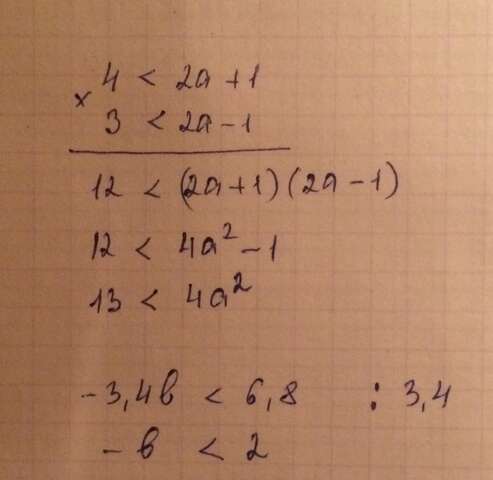 4 < 2a + 1
×
3 < 2a - 1
12 < (2a+1)(2a-1)
12 < 4a² - 1
13 < 4a²
-3,4b < 6,8 : 3,4
-b < 2